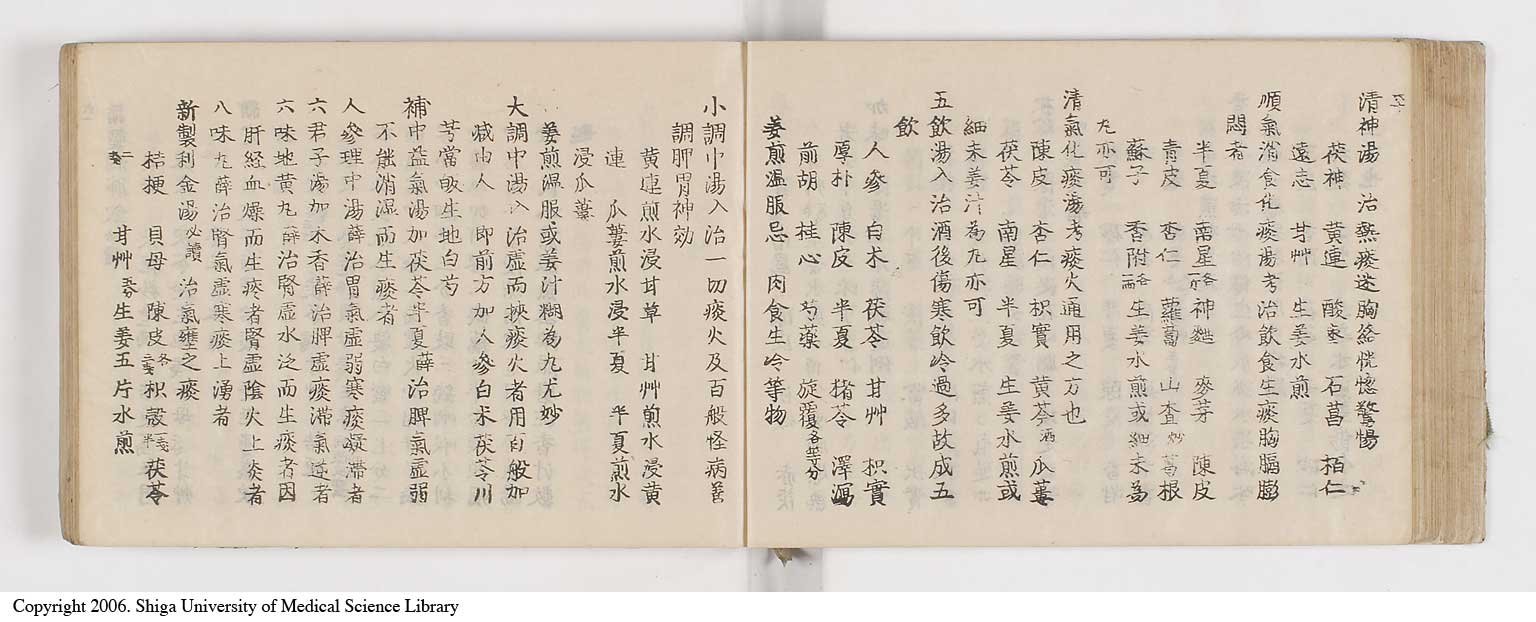 清神湯 治熱痰迷胸絡恍惚驚惕
茯神 黃連 酸棗 石菖 栢仁
遠志 甘艸 生姜水煎
順氣消食化痰湯 治飲食生痰胸膈膨
悶者
半夏 南星 神麯 麥芽 陳皮
青皮 杏仁 蘿蔔 山査炒 葛根
蘇子 香附 生姜水煎或細末為
丸亦可
清氣化痰湯 痰火通用之方也
陳皮 杏仁 枳實 黃芩酒 瓜蔞
茯苓 南星 半夏 生姜水煎或
細末姜汁為丸亦可
五飲湯入 治酒後傷寒飲冷過多故成五
飲
人參 白朮 茯苓 甘艸 枳實
厚朴 陳皮 半夏 猪苓 澤瀉
前胡 桂心 芍藥 旋覆各等分
姜煎温服忌肉食生冷等物
小調中湯入 治一切痰火及百般怪病善
調脾胃神効
黃連煎水浸甘草 甘艸煎水浸黃
連 瓜蔞煎水浸半夏 半夏煎水
浸瓜蔞
姜煎温服或姜汁糊為丸尤妙
大調中湯入 治虚而挾痰火者用百般加
減由人 即前方加人參白朮茯苓川
芎當皈生地白芍
補中益氣湯加茯苓半夏薛 治脾氣虚弱
不能消湿而生痰者
人參理中湯薛 治胃氣虚弱寒痰凝滞者
六君子湯加木香薛 治脾虚痰滞氣逆者
六味地黃丸薛 治腎虚水泛而生痰者因
肝経血燥而生痰者腎虚陰火上炎者
八味丸薛 治腎氣虚寒痰上湧者
新製利金湯必讀 治氣壅之痰
桔梗 貝母 陳皮各三戔 枳殻一戔半 茯苓
二戔 甘艸 生姜五片水煎
Copyright 2006. Shiga University of Medical Science Library